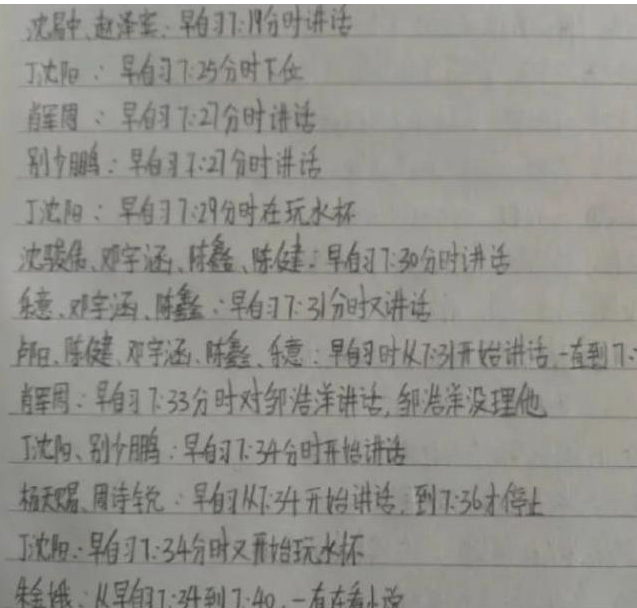 沈昌中、赵泽宏：早自习7:19分时讲话
丁沈阳：早自习7:25分时下位
肖军周：早自习7:27分时讲话
别少鹏：早自习7:27分时讲话
丁沈阳：早自习7:29分时在玩水杯
沈骏伟、邓宇涵、陈鑫、陈健：早自习7:30分时讲话
乐意、邓宇涵、陈鑫：早自习7:31分时又讲话
卢阳、陈健、邓宇涵、陈鑫、乐意：早自习时从7:31开始讲话，一直到7:
肖军周：早自习7:33分时对邹浩洋讲话，邹浩洋没理他
丁沈阳、别少鹏：早自习7:34分时开始讲话
杨天赐、周诗锐：早自习从7:34开始讲话，到7:36才停止
丁沈阳：早自习7:34分时又开始玩水杯
朱金娥：从早自习7:34到7:40，一直在看小说